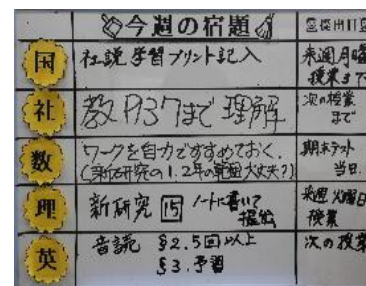 今週の宿題
提出日
国 社説学習プリント記入 来週月曜
授業まで
社 教P37まで理解 次の授業
まで
数 ワークを自力ですすめておく. 期末テスト
(新研究の1.2年の範囲大丈夫?) 当日.
理 新研究 15 ノートに書いて 来週火曜日
提出 授業
英 音読 §2.5回以上 次の授業
§3.予習